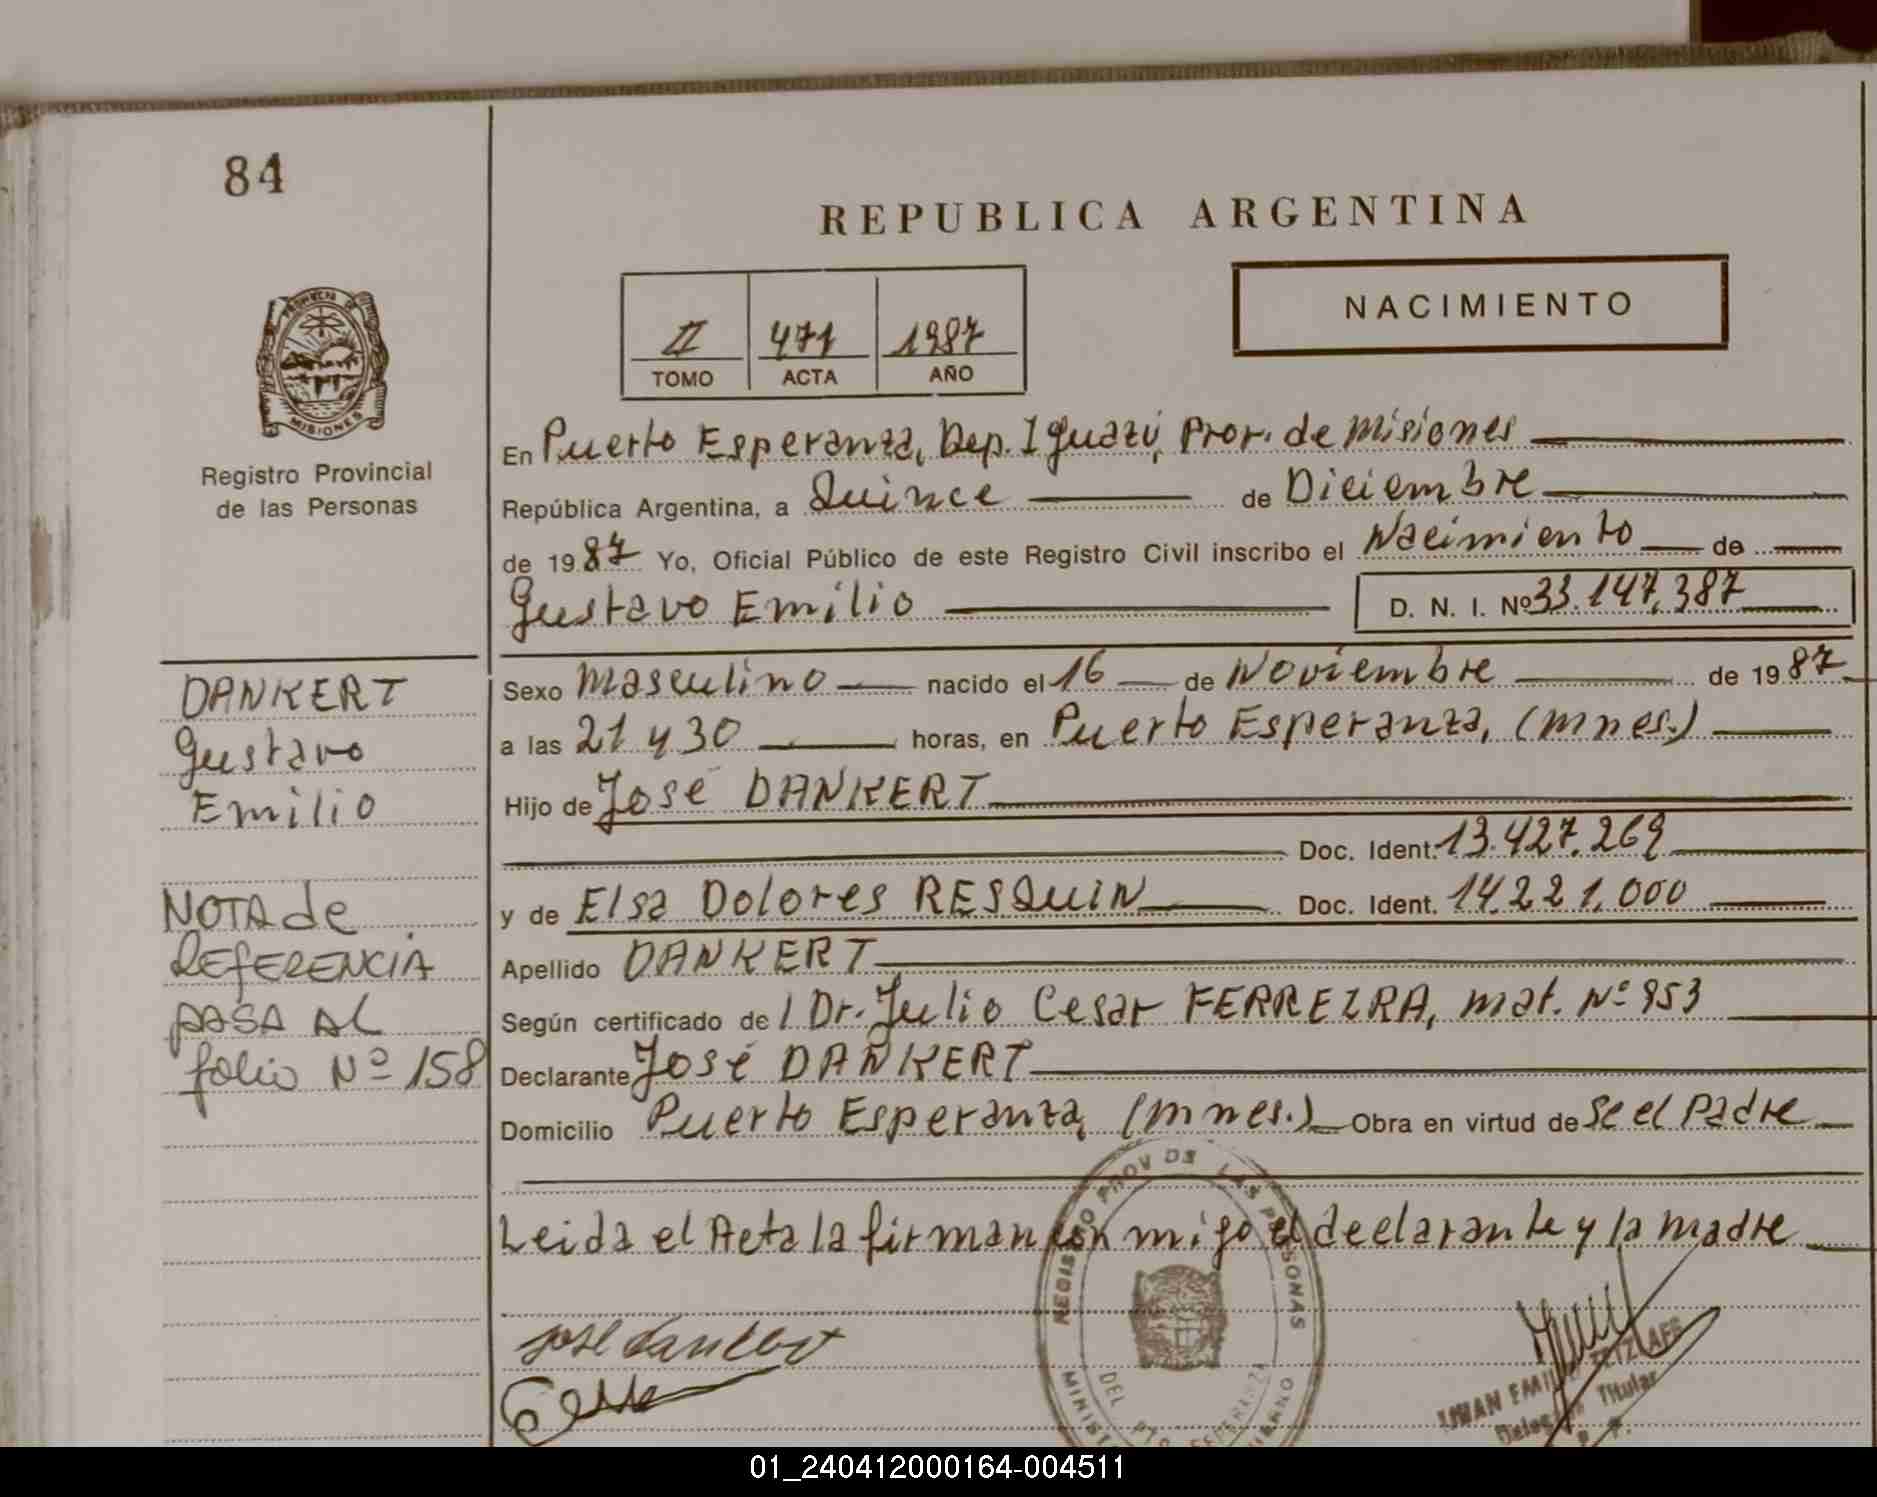 84
REPUBLICA ARGENTINA
NACIMIENTO
II 471 1987
TOMO ACTA AÑO
PROVINCIA DE
MISIONES
Registro Provincial
de las Personas
En Puerto Esperanza, Dep. Iguazú, Prov. de Misiones
República Argentina, a Quince de Diciembre
de 1987 Yo, Oficial Público de este Registro Civil inscribo el Nacimiento de
Gustavo Emilio D. N. I. Nº 33.147.387
DANKERT
Gustavo
Emilio
NOTA de
REFERENCIA
PASA AL
folio Nº 158
Sexo Masculino nacido el 16 de Noviembre de 1987
a las 21 y 30 horas, en Puerto Esperanza, (Mnes.)
Hijo de José DANKERT
Doc. Ident. 13.427.269
y de Elsa Dolores RESQUIN Doc. Ident. 14.221.000
Apellido DANKERT
Según certificado de l Dr. Julio Cesar FERREIRA, mat. Nº 953
Declarante José DANKERT
Domicilio Puerto Esperanza, (Mnes.) Obra en virtud de Se el Padre
Leida el Acta la firman con migo el declarante y la madre
REGISTRO PROV DE LAS PERSONAS
Jose Dankert
Titular
01_240412000164-004511